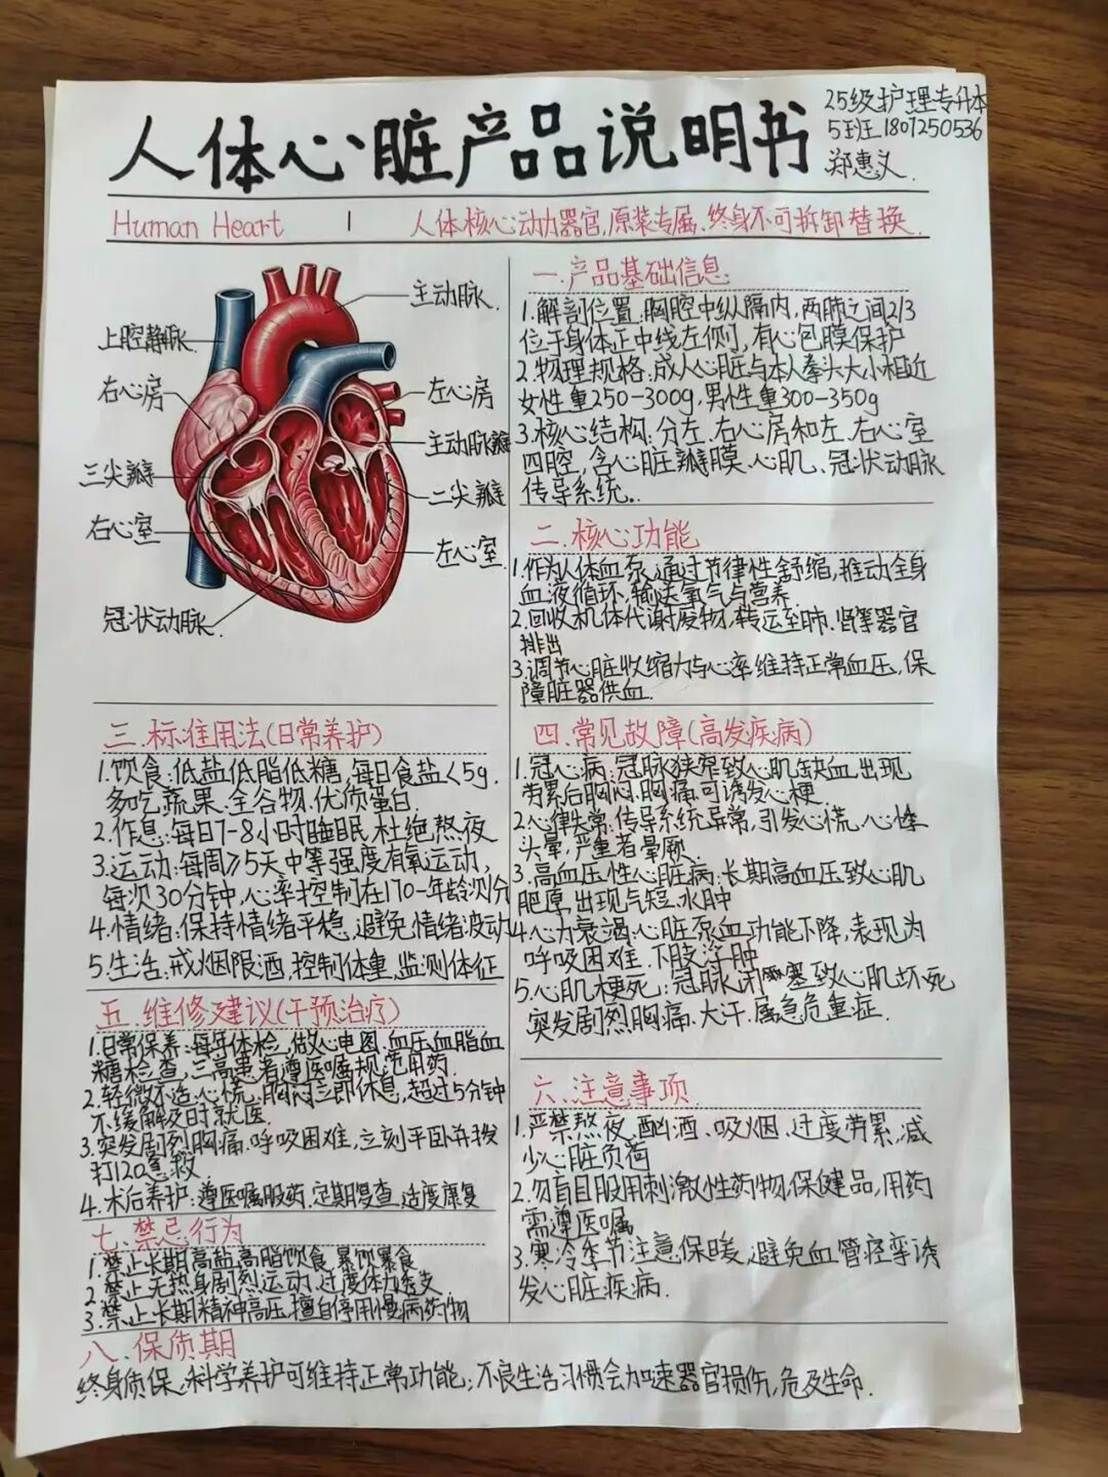 人体心脏产品说明书
25级护理专升本
5班 1807250536
郑惠义
Human Heart | 人体核心动力器官,原装专属、终身不可拆卸替换.
主动脉.
上腔静脉.
右心房
左心房
主动脉瓣
三尖瓣
二尖瓣
右心室
左心室
冠状动脉.
一.产品基础信息:
1.解剖位置:胸腔中纵隔内,两肺之间2/3
位于身体正中线左侧,有心包膜保护
2.物理规格:成人心脏与本人拳头大小相近
女性重250-300g,男性重300-350g
3.核心结构:分左、右心房和左、右心室
四腔,含心脏瓣膜、心肌、冠状动脉
传导系统.
二.核心功能
1.作为人体血泵,通过节律性舒缩,推动全身
血液循环,输送氧气与营养
2.回收机体代谢废物,转运至肺、肾等器官
排出
3.调节心脏收缩力与心率,维持正常血压,保
障脏器供血.
三.标准用法(日常养护)
1.饮食:低盐低脂低糖,每日食盐<5g.
多吃蔬果、全谷物、优质蛋白.
2.作息:每日7-8小时睡眠,杜绝熬夜
3.运动:每周≥5天中等强度有氧运动,
每次30分钟,心率控制在170-年龄次/分
4.情绪:保持情绪平稳,避免情绪波动
5.生活:戒烟限酒,控制体重,监测体征
四.常见故障(高发疾病)
1.冠心病:冠脉狭窄致心肌缺血,出现
劳累后胸闷、胸痛,可诱发心梗.
2.心律失常:传导系统异常,引发心慌、心悸
头晕,严重者晕厥.
3.高血压性心脏病:长期高血压致心肌
肥厚,出现气短、水肿
4.心力衰竭:心脏泵血功能下降,表现为
呼吸困难、下肢浮肿
5.心肌梗死:冠脉闭塞致心肌坏死
突发剧烈胸痛、大汗.属急危重症.
五.维修建议(干预治疗)
1.日常保养:每年体检,做心电图、血压血脂血
糖检查,三高患者遵医嘱规范用药.
2.轻微不适:心慌、胸闷立即休息,超过5分钟
不缓解及时就医.
3.突发剧烈胸痛、呼吸困难,立刻平卧并拨
打120急救
4.术后养护:遵医嘱服药,定期复查,适度康复
六.注意事项
1.严禁熬夜、酗酒、吸烟、过度劳累,减
少心脏负荷
2.勿盲目服用刺激性药物、保健品,用药
需遵医嘱
3.寒冷季节注意保暖,避免血管痉挛诱
发心脏疾病.
七.禁忌行为
1.禁止长期高盐高脂饮食、暴饮暴食
2.禁止无热身剧烈运动、过度体力透支
3.禁止长期精神高压,擅自停用慢病药物
八.保质期
终身质保,科学养护可维持正常功能;不良生活习惯会加速器官损伤,危及生命.